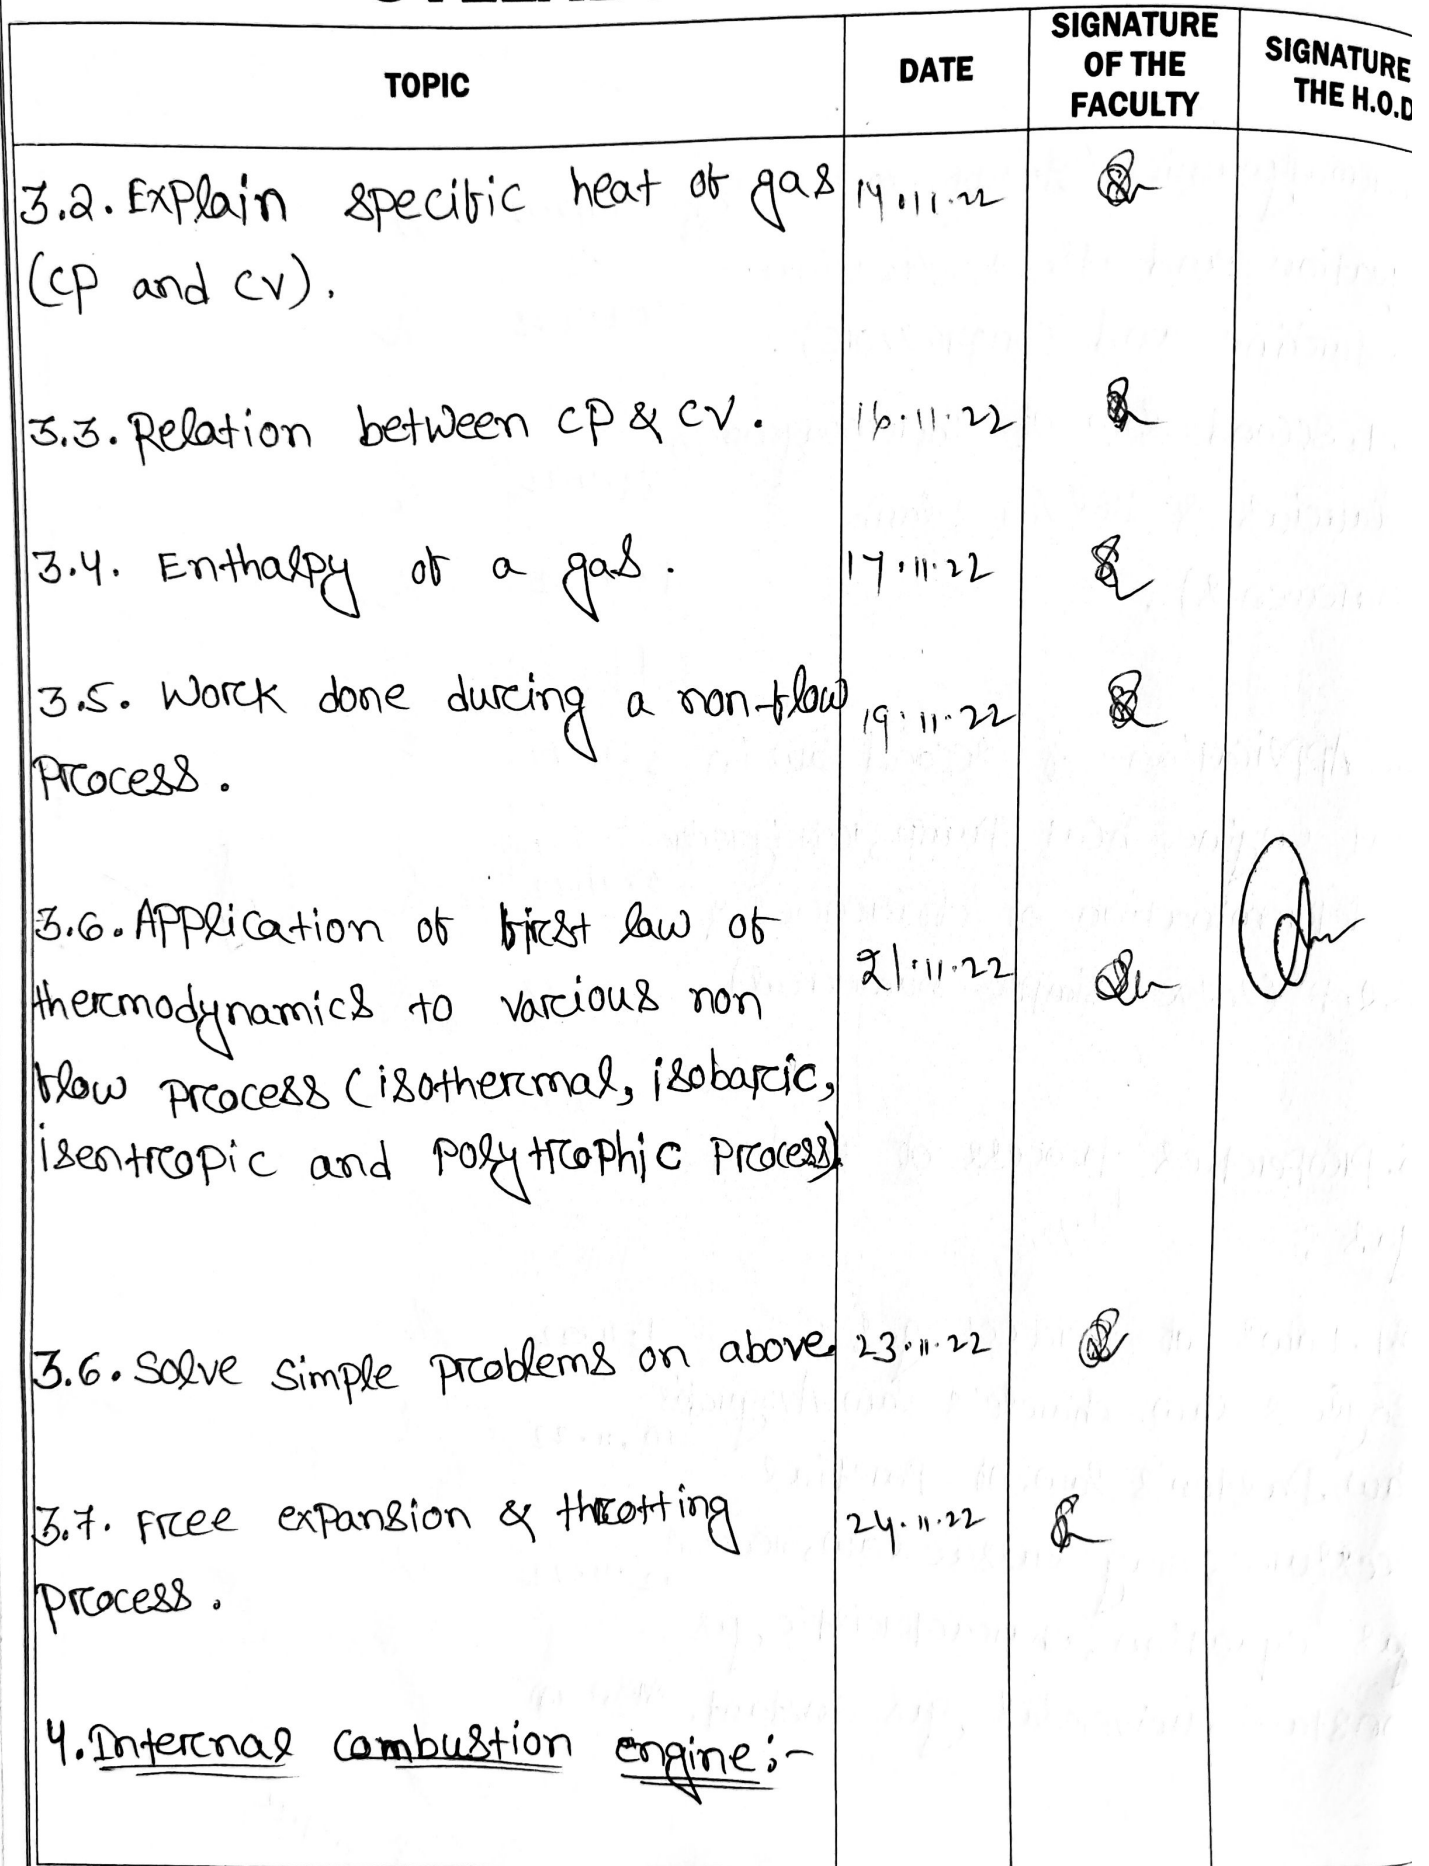 TOPIC
DATE
SIGNATURE
OF THE
FACULTY
SIGNATURE
THE H.O.D
3.2. Explain specific heat of gas 14.11.22
(cp and cv).
3.3. Relation between cp & cv. 16.11.22
3.4. Enthalpy of a gas. 17.11.22
3.5. Work done during a non-flow 19.11.22
Process.
3.6. Application of first law of
21.11.22
thermodynamics to various non
flow process (isothermal, isobaric,
isentropic and polytrophic process).
3.6. Solve simple problems on above. 23.11.22
3.7. Free expansion & throtting 24.11.22
process.
4. Internal combustion engine:-